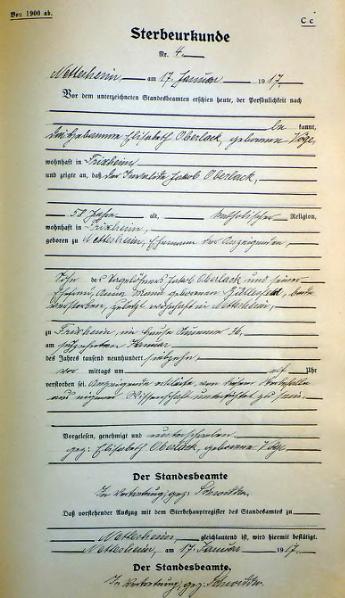 Von 1900 ab.
C c
Sterbeurkunde
Nr. 4.
Nettersheim, am 17. Januar 1917.
Vor dem unterzeichneten Standesbeamten erschien heute, der Persönlichkeit nach
be kannt,
die Hebamme Elisabeth Oberlack, geborene Vogt,
wohnhaft in Frohngau,
und zeigte an, daß der Invalide Jakob Oberlack,
50 Jahre alt, katholischer Religion,
wohnhaft in
geboren zu Nettersheim, Ehemann der Anzeigenden,
Sohn des Tagelöhners Jakob Oberlack und seiner
Ehefrau, Anna Maria geborenen beide
verstorben, zuletzt wohnhaft in Nettersheim,
zu im Hause Nummer 36,
am sechzehnten Januar
des Jahres tausend neunhundert siebzehn,
vor mittags um Uhr
verstorben sei. Anzeigende erklärte, von diesem Sterbefalle
aus eigener Wissenschaft unterrichtet zu sein.
Vorgelesen, genehmigt und unterschrieben
gez. Elisabeth Oberlack, geborene Vogt.
Der Standesbeamte
In Vertretung, gez.
Daß vorstehender Auszug mit dem Sterbehauptregister des Standesamtes zu
Nettersheim, gleichlautend ist, wird hiermit bestätigt.
Nettersheim, am 17. Januar 1917.
Der Standesbeamte.
In Vertretung, gez.